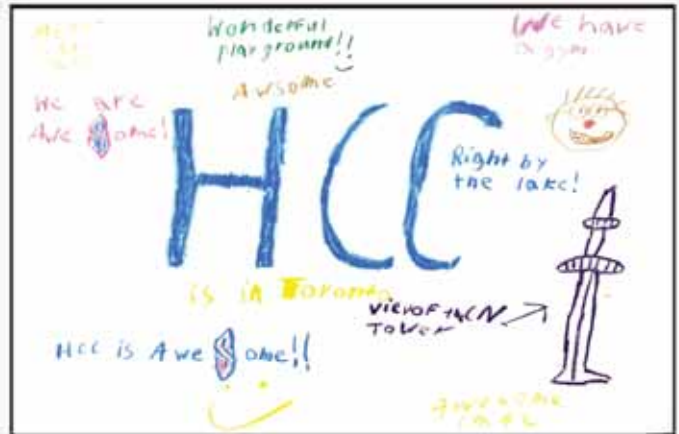 Wonderful
playground!!
We have
a gym
Awsome
We are
Awesome!
HCC
Right by
the lake!
is in Toronto
view of the CN
Tower
HCC is Awesome!!
Awesome